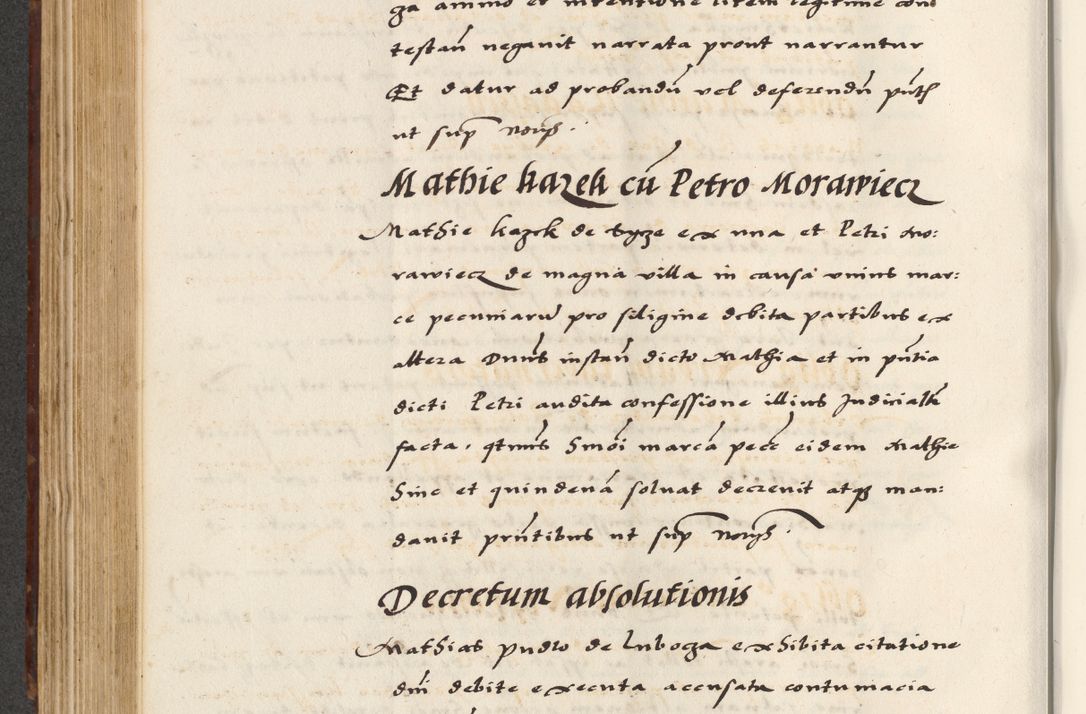 ga animo et intentione litem legitime con
testan̄ negavit narrata prout narrantur
Et datur ad probandū vel deferendū pn̄tb
ut sup̄ no͞t͞ꝭ.
Mathie kazek cū Petro Morawiecz
Mathie kazek de tyze ex una et Petri Mo:
rawiecz de magna villa in causa unius mar:
ce pecuniarū pro siligine debita partibus ex
altera Dnūs instan̄ dicto Mathia et in pn̄tia
dicti Petri audita confessione illius Judicialit̄
facta, qtnūs Smōi marcā pecc̄ eidem Mathie
Sinc et quindenā solvat decrevit atqꝫ man:
davit pn̄tibus ut sup̄
Decretum absolutionis
Mathias pudlo de Lubocza exhibita citatione
dn̄i debite executa accusata contumacia